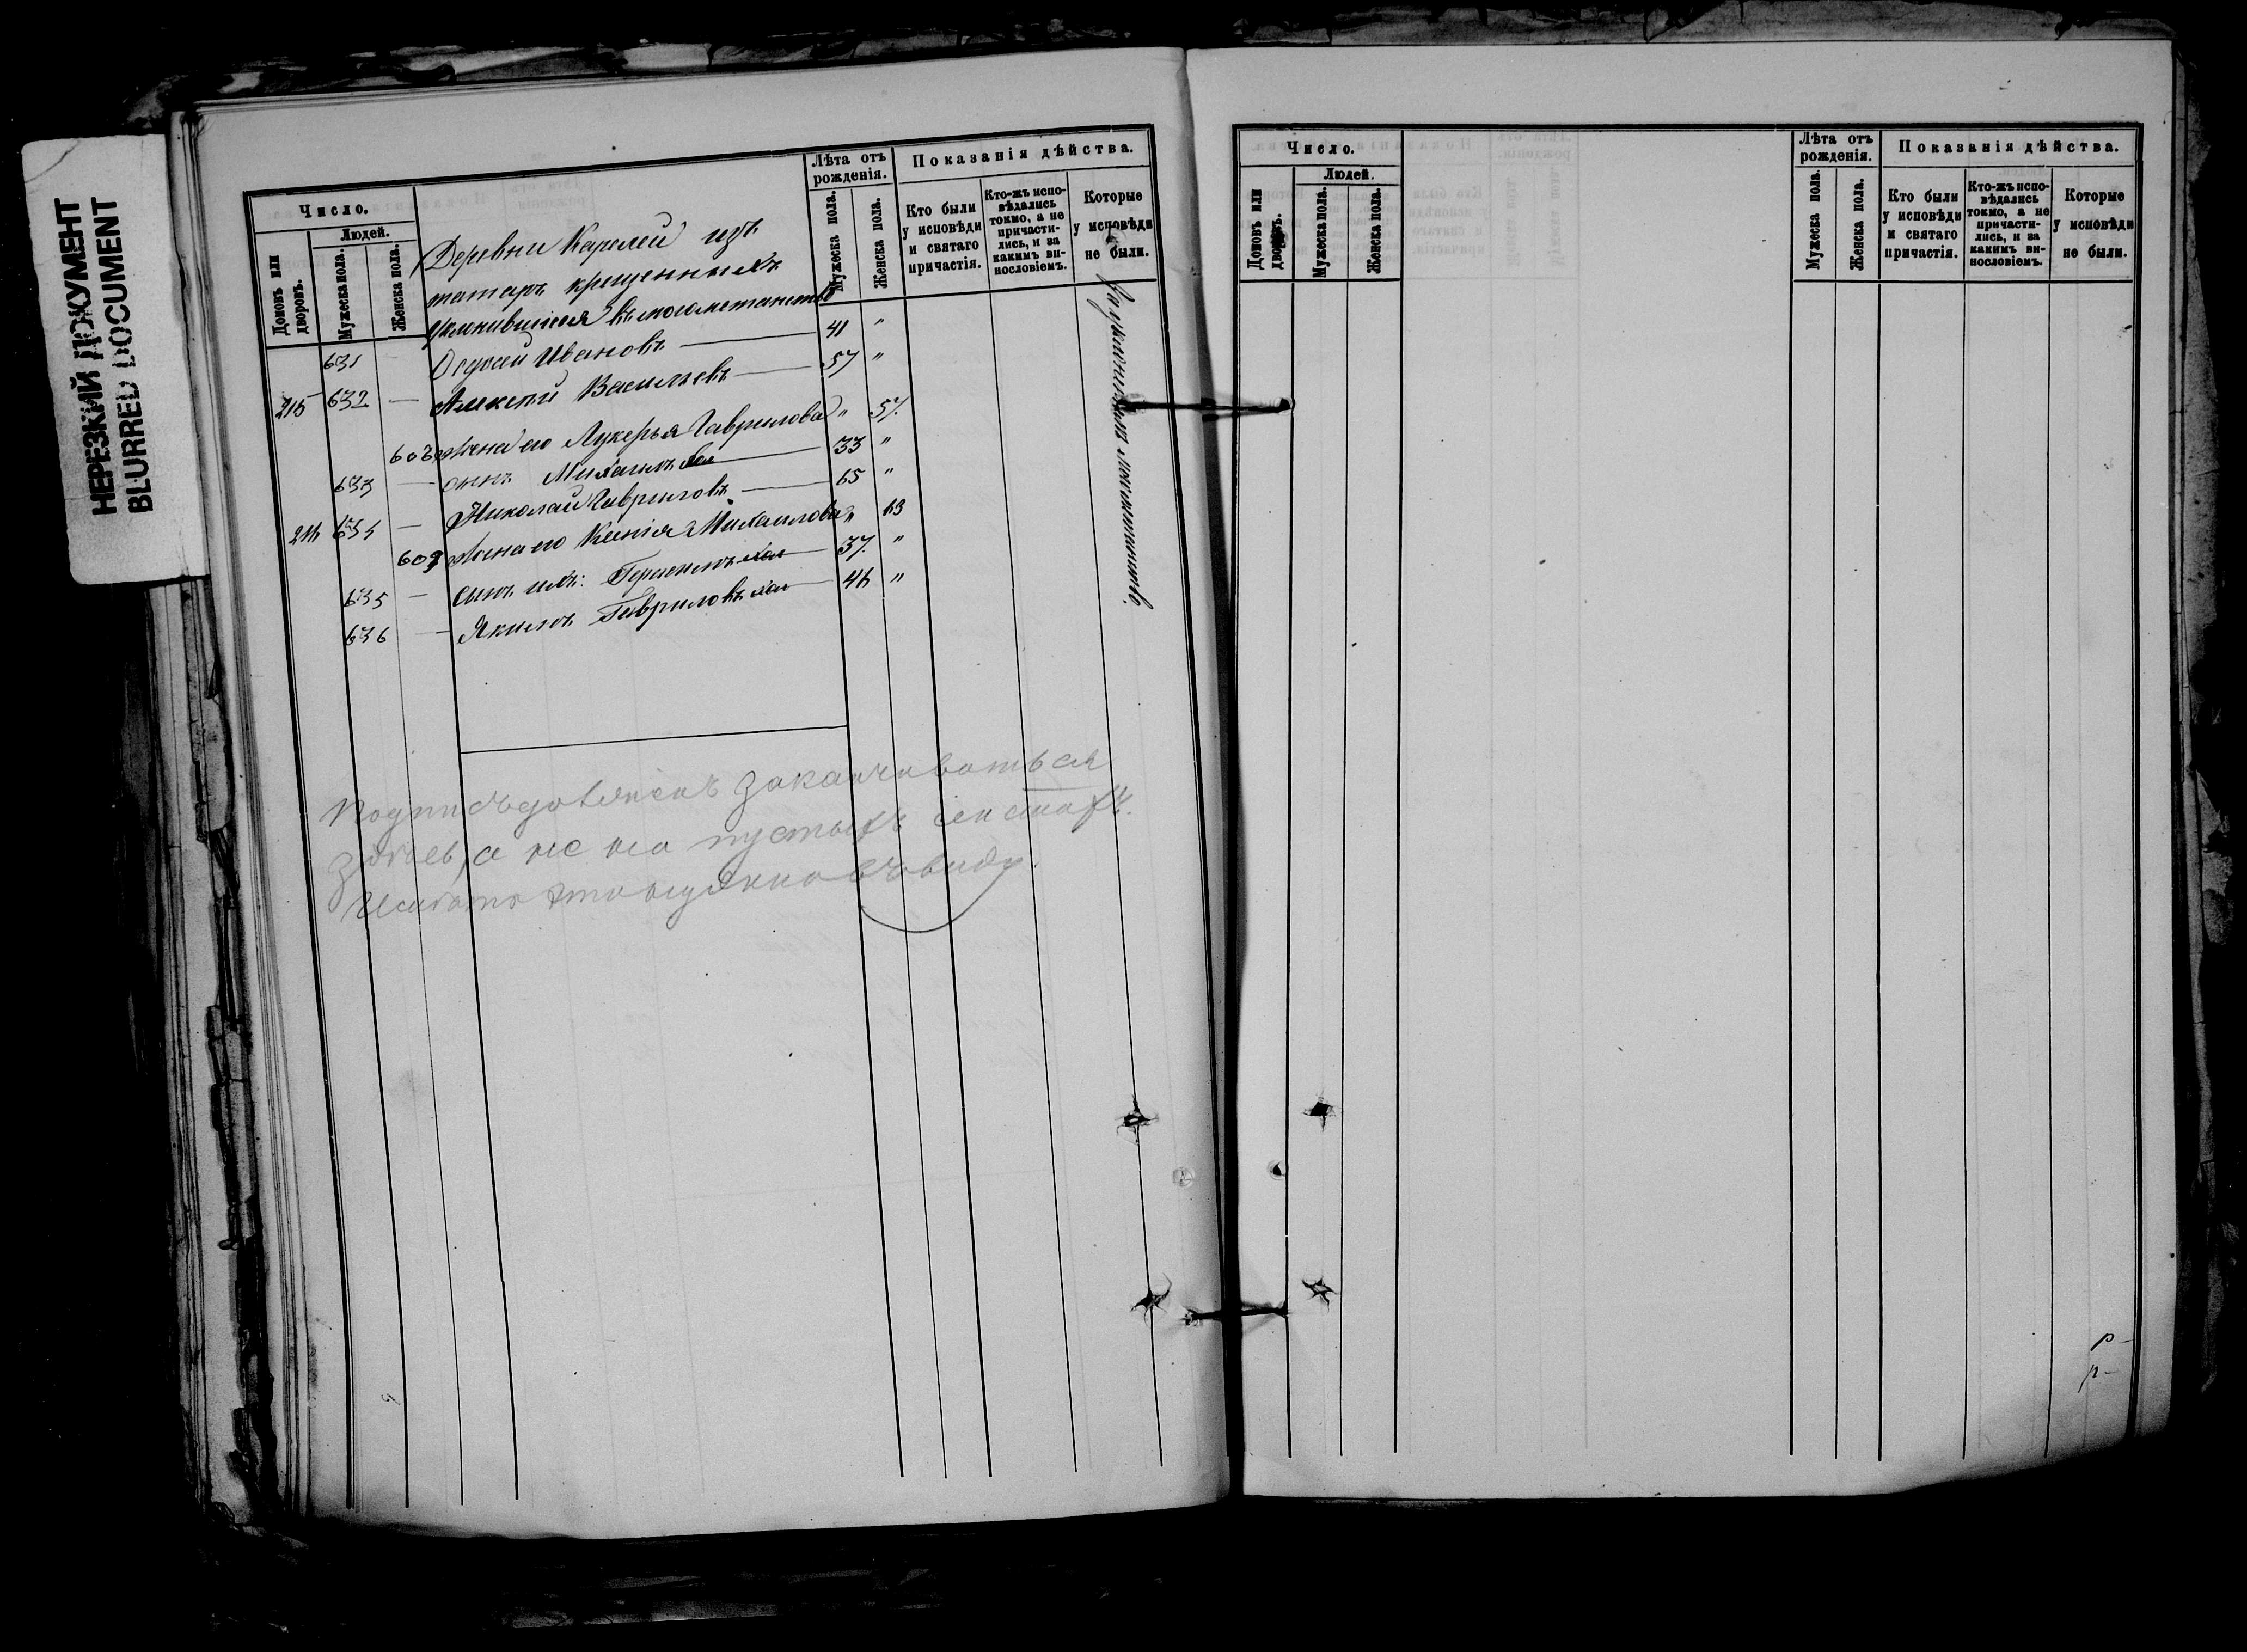 НЕРЕЗКИЙ ДОКУМЕНТ
BLURRED DOCUMENT
Число.
Людей.
Домовъ или дворовъ.
Мужеска пола.
Женска пола.
Лѣта отъ рожденія.
Мужеска пола.
Женска пола.
Показанія дѣйства.
Кто были у исповѣди и святаго причастія.
Кто-жъ исповѣдались токмо, а не причастились, и за какимъ винословіемъ.
Которые у исповѣди не были.
Деревни Карелей изъ
татаръ крещенныхъ
уклонившіися въ магометанство
631 — Ивановъ — 41 "
215 632 — Алексѣй Васильевъ — 57 "
жена его Лукерья Гаврилова " 57.
633 — сынъ Михаилъ 33 "
634 — Николай Гавриловъ — 65 "
609 жена его Ксенія Михаилова " 63
635 — сынъ ихъ: 37. "
636 — Якимъ Гавриловъ 46 "
За уклоненіемъ
заканчиваться
здѣсь, а не на пустыхъ
Число.
Людей.
Домовъ или дворовъ.
Мужеска пола.
Женска пола.
Лѣта отъ рожденія.
Мужеска пола.
Женска пола.
Показанія дѣйства.
Кто были у исповѣди и святаго причастія.
Кто-жъ исповѣдались токмо, а не причастились, и за какимъ винословіемъ.
Которые у исповѣди не были.